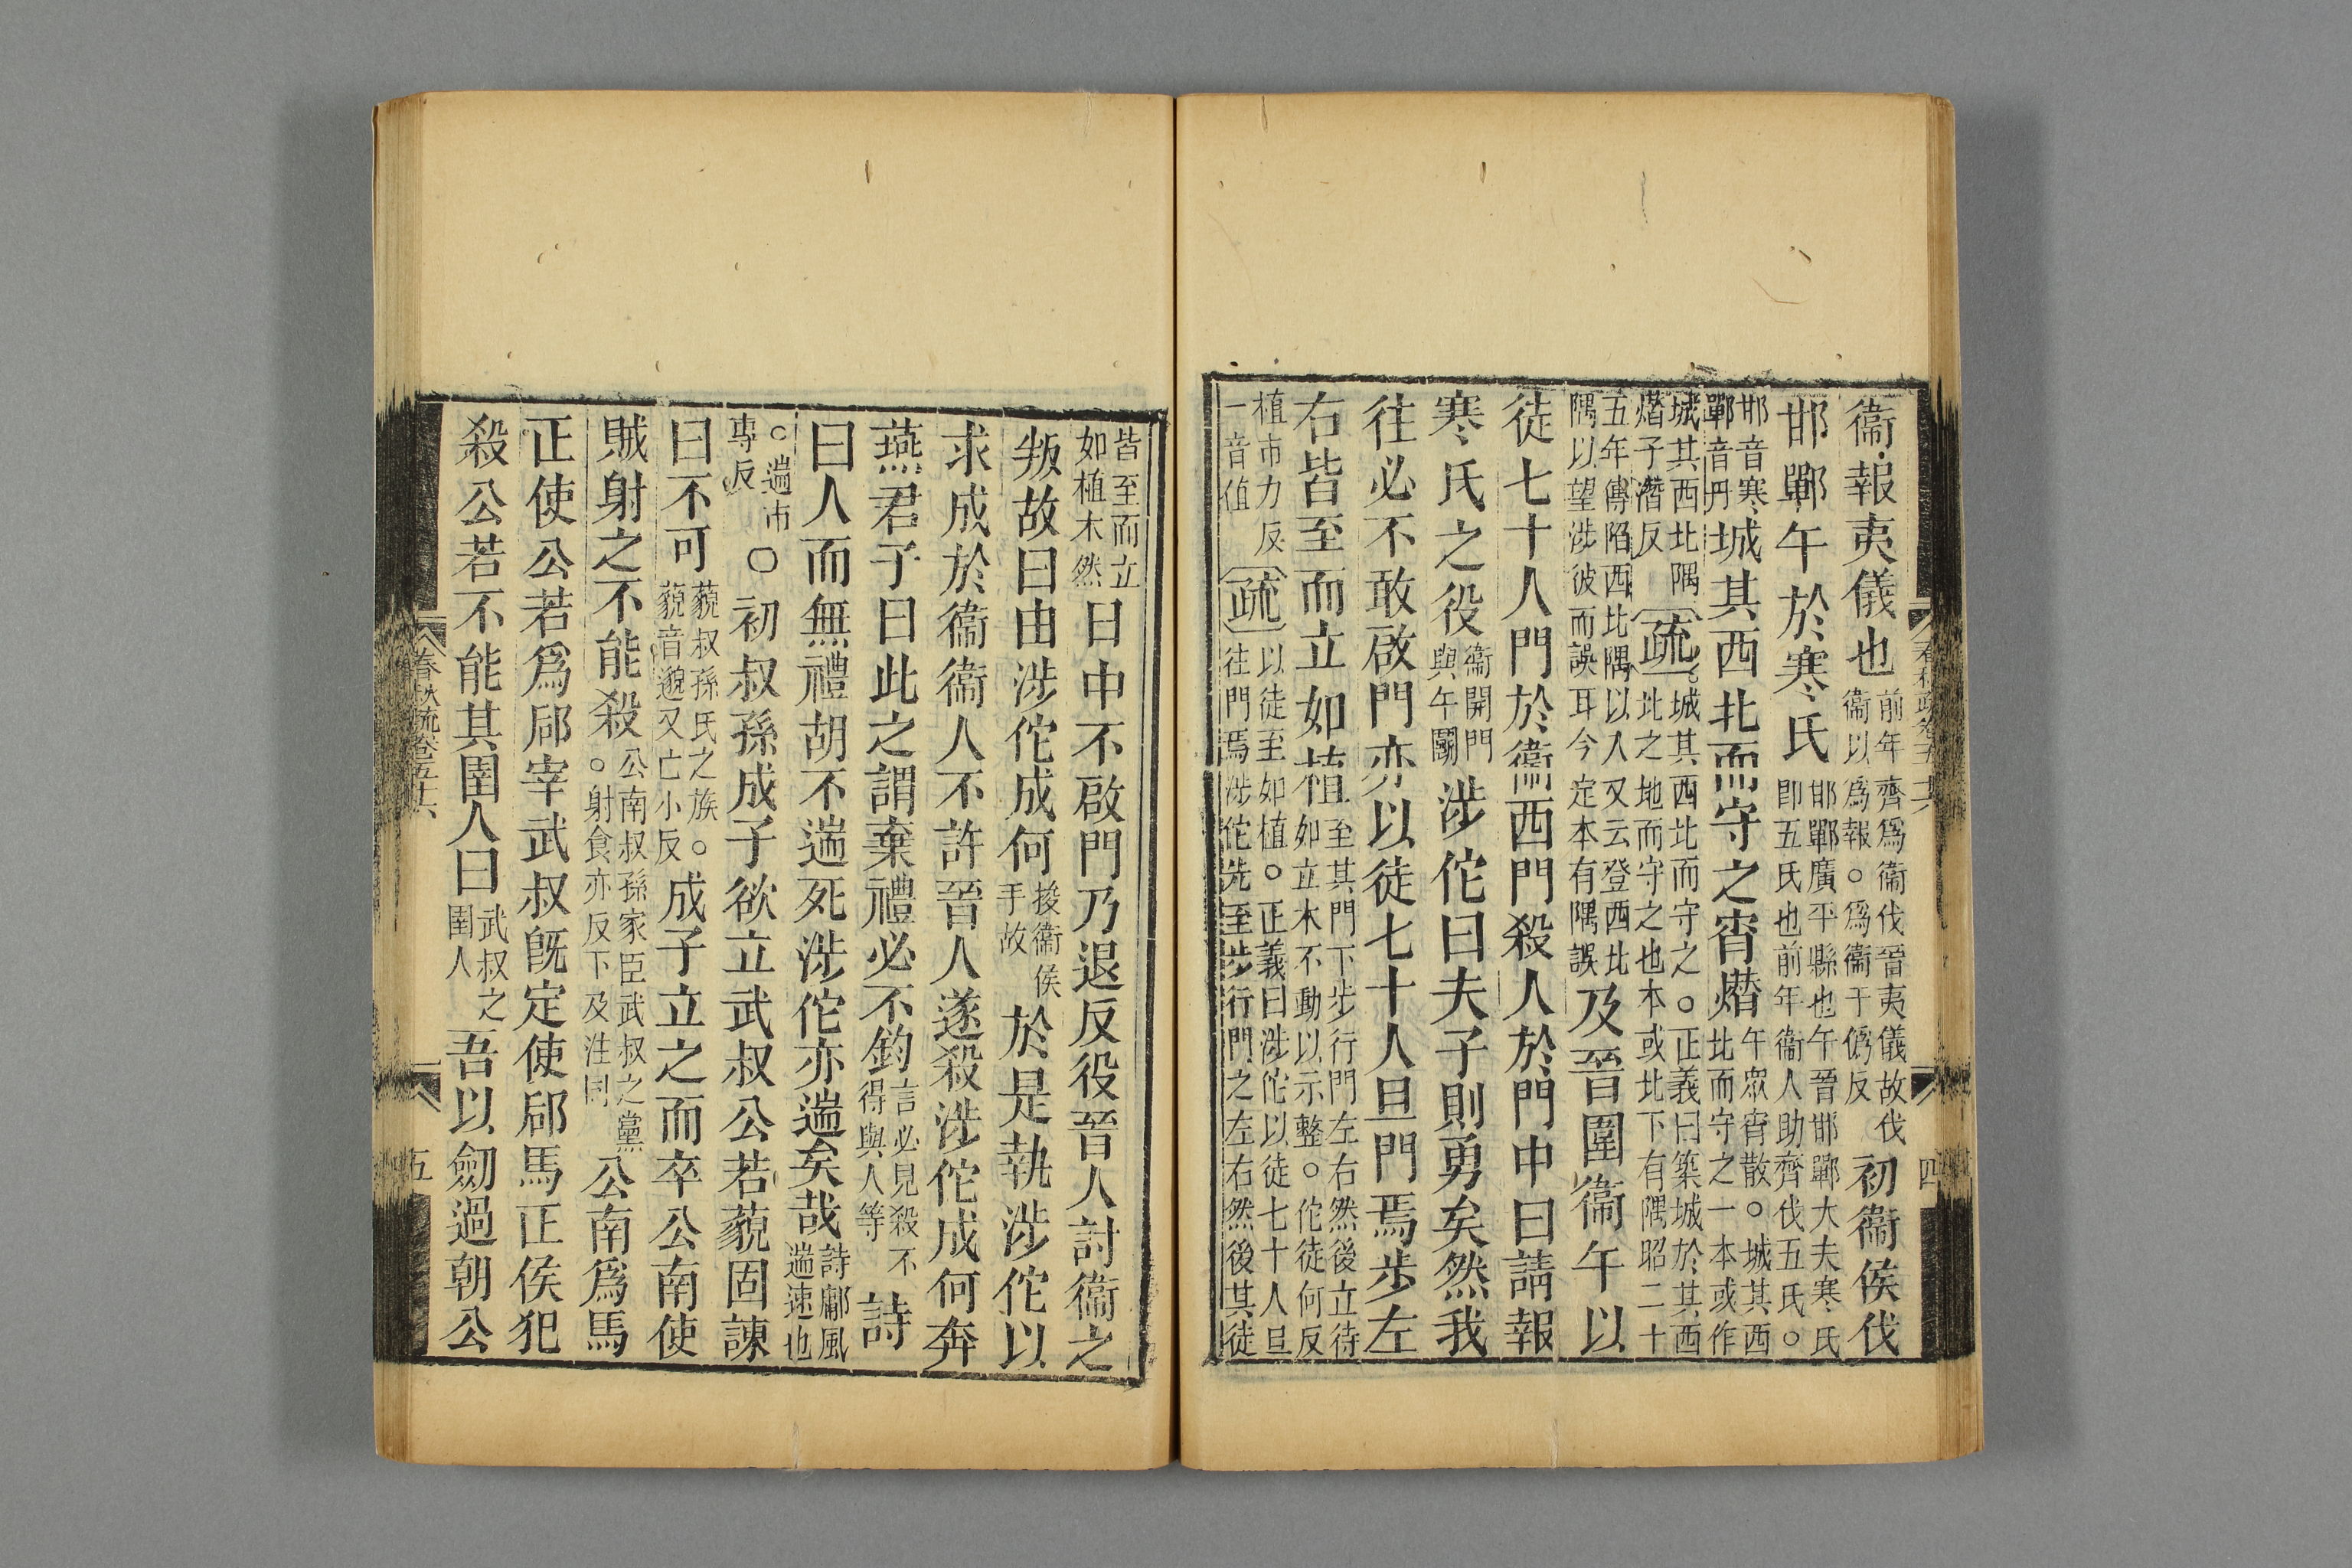 衞報夷儀也前年齊爲衞伐晉夷儀故伐衞以爲報○爲衞于僞反初衞侯伐
邯鄲午於寒氏邯鄲廣平縣也午晉邯鄲大夫寒氏即五氏也前年衞人助齊伐五氏○
邯音寒鄲音丹城其西北而守之宵熸午眾宵散○城其西北而守之一本或作
城其西北隅熸子潛反疏城其西北而守之○正義曰築城於其西北之地而守之也本或北下有隅昭二十
五年傳陷西北隅以入又云登西北隅以望涉彼而誤耳今定本有隅誤及晉圍衞午以
徒七十人門於衞西門殺人於門中曰請報
寒氏之役衞開門與午鬭涉佗曰夫子則勇矣然我
往必不敢啟門亦以徒七十人旦門焉步左
右皆至而立如植至其門下步行門左右然後立待如立木不動以示整○佗徒何反
植市力反一音值疏以徒至如植○正義曰涉佗以徒七十人旦往門焉涉佗先至步行門之左右然後其徒
春秋疏卷五十六
四
皆至而立如植木然日中不啟門乃退反役晉人討衞之
叛故曰由涉佗成何捘衞侯手故於是執涉佗以
求成於衞衞人不許晉人遂殺涉佗成何奔
燕君子曰此之謂棄禮必不鈞言必見殺不得與人等詩
曰人而無禮胡不遄死涉佗亦遄矣哉詩鄘風遄速也
○遄市專反○初叔孫成子欲立武叔公若藐固諫
曰不可藐叔孫氏之族○藐音邈又亡小反成子立之而卒公南使
賊射之不能殺公南叔孫家臣武叔之黨○射食亦反下及注同公南爲馬
正使公若爲郈宰武叔旣定使郈馬正侯犯
殺公若不能其圉人曰武叔之圉人吾以劒過朝公
春秋疏卷五十六
五